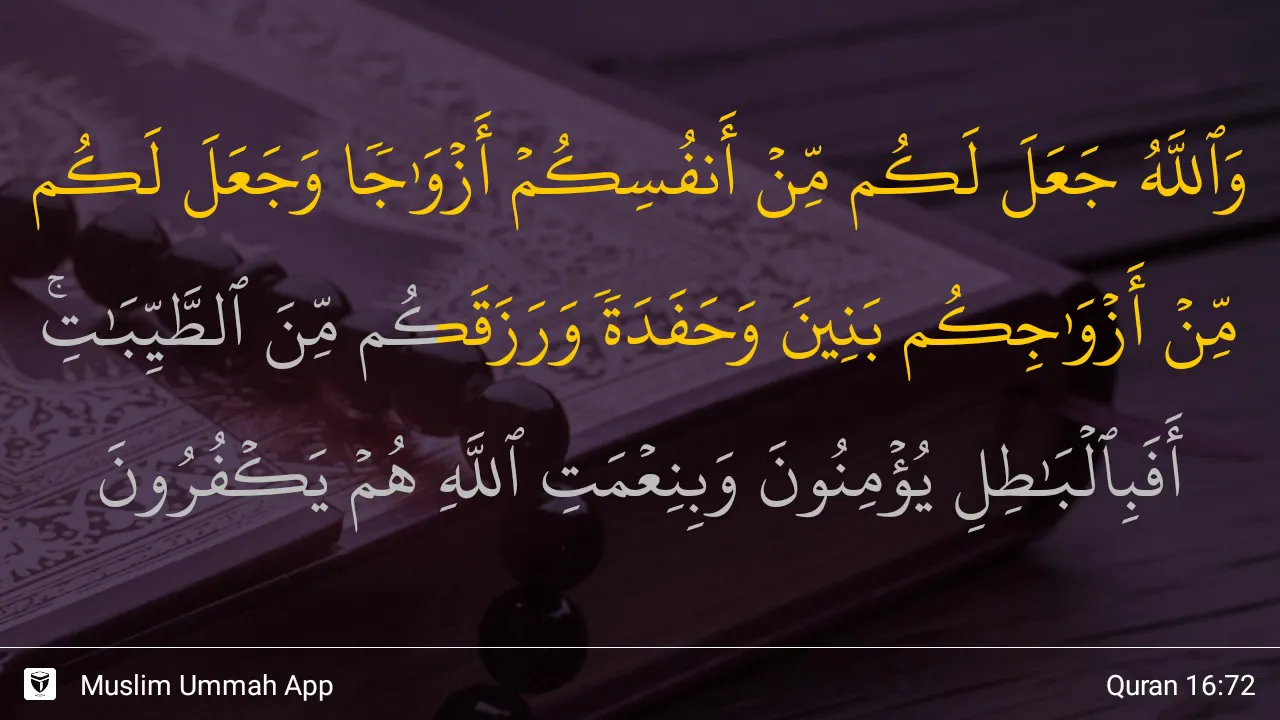 وَٱللَّهُ جَعَلَ لَكُم مِّنْ أَنفُسِكُمْ أَزْوَٰجًا وَجَعَلَ لَكُم
مِّنْ أَزْوَٰجِكُم بَنِينَ وَحَفَدَةً وَرَزَقَكُم مِّنَ ٱلطَّيِّبَـٰتِ ۚ
أَفَبِٱلْبَـٰطِلِ يُؤْمِنُونَ وَبِنِعْمَتِ ٱللَّهِ هُمْ يَكْفُرُونَ
Muslim Ummah App
Quran 16:72